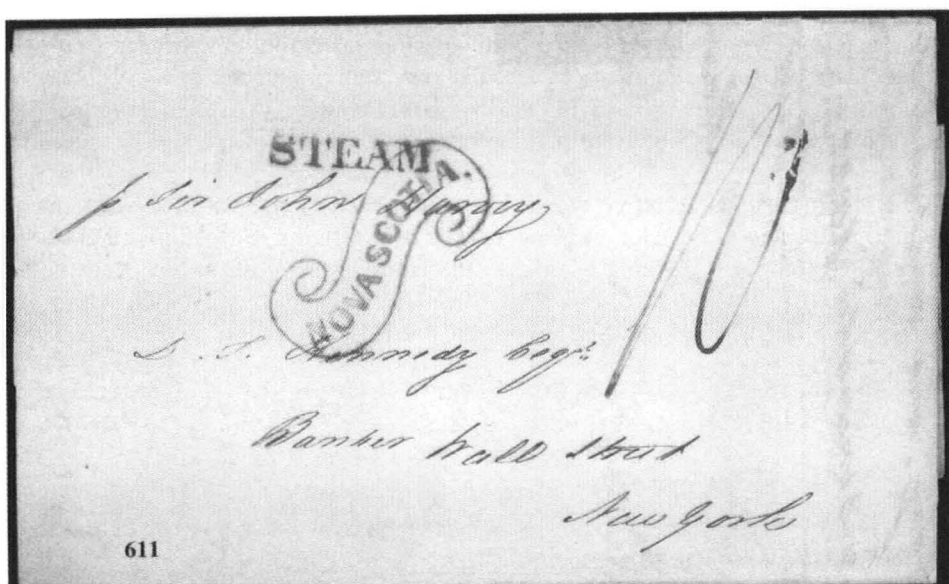 STEAM
NOVASCOTIA.
p Sir John Harvey
10
D. S. Kennedy Esqr.
Banker Wall Street
New York
611